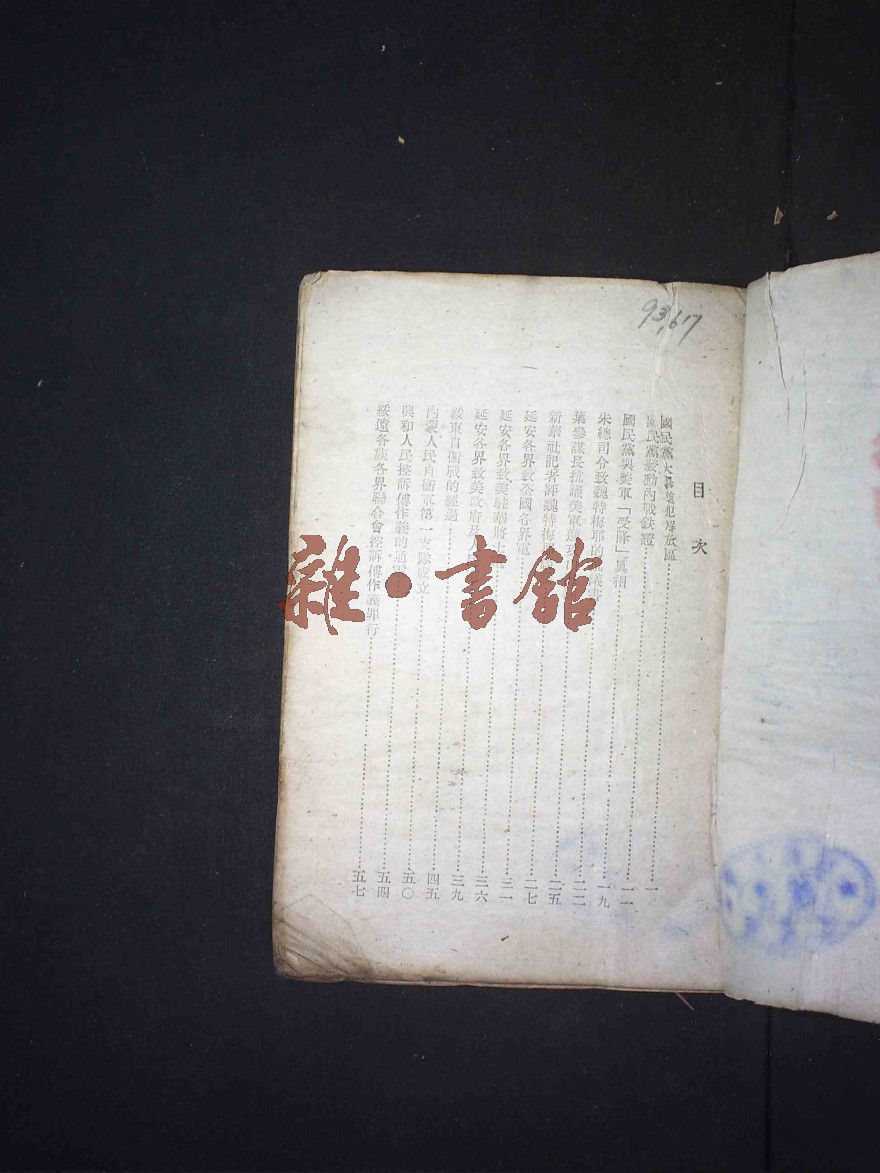 93,617
目次
國民黨大舉進犯解放區……一
國民黨發動內戰鉄證……一一
國民黨與美軍「受降」眞相……一九
朱總司令致魏特梅耶的……二二
葉參謀長抗議美軍進攻……二五
新華社記者評魏特梅……二七
延安各界致全國各界電……三一
延安各界致美駐華將士……三六
延安各界致美政府……三九
綏東自衛戰的經過……四五
內蒙人民自衛軍第一支隊成立……五〇
興和人民控訴傅作義的通電……五四
綏遠各族各界聯合會控訴傅作義罪行……五七
雜·書館